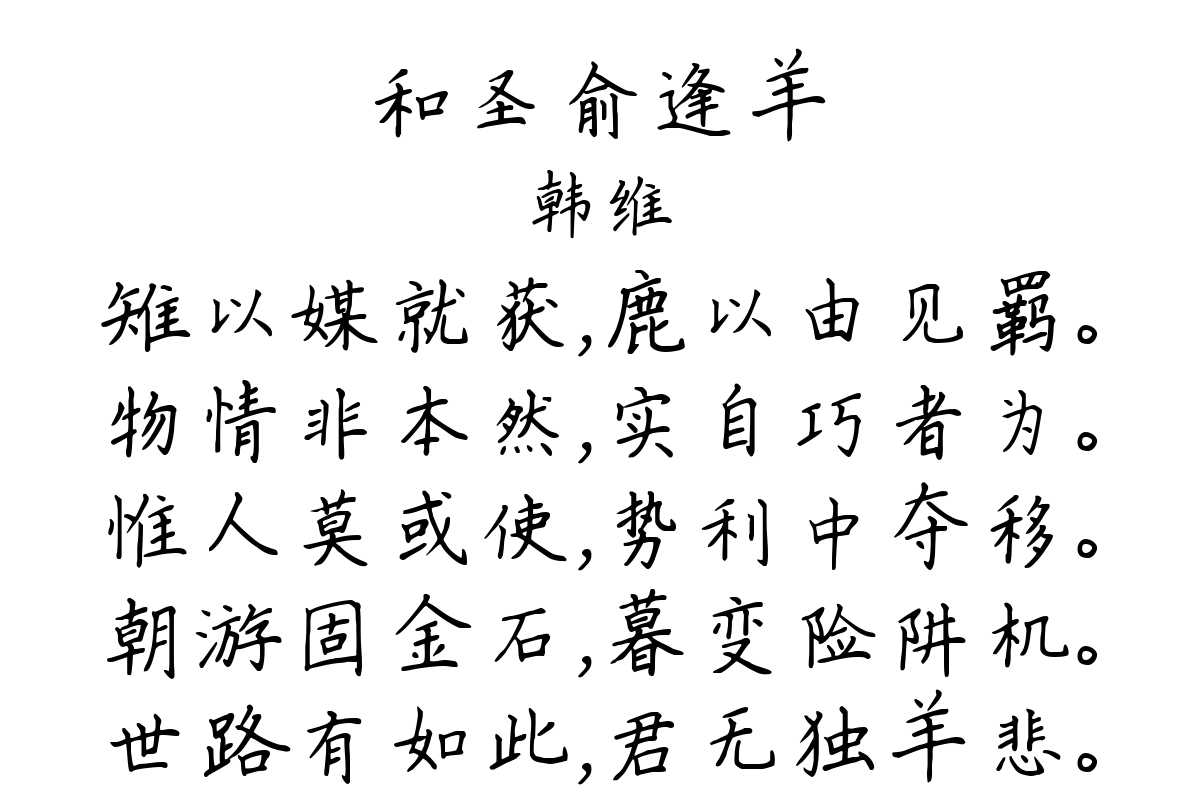 和圣俞逢羊
韩维
雉以媒就获,鹿以由见羁。
物情非本然,实自巧者为。
惟人莫或使,势利中夺移。
朝游固金石,暮变险阱机。
世路有如此,君无独羊悲。